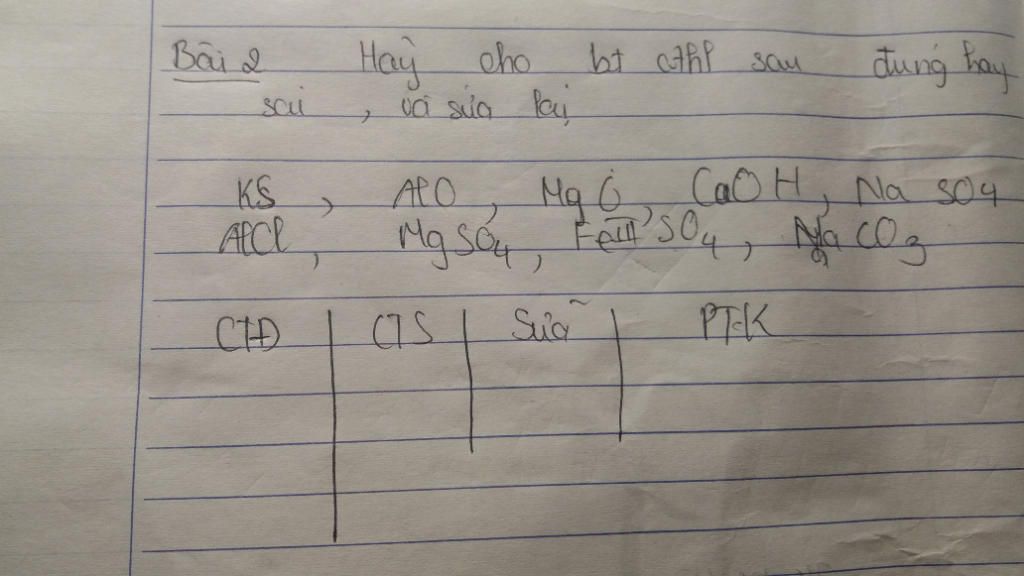 Bài 2 Hãy cho bt cthh sau đúng hay
sai , và sửa lại
KS , AlO , MgO , CaOH , Na SO4
AlCl , MgSO4 , FeIII SO4 , Na CO3
CTĐ CTS Sửa PTK